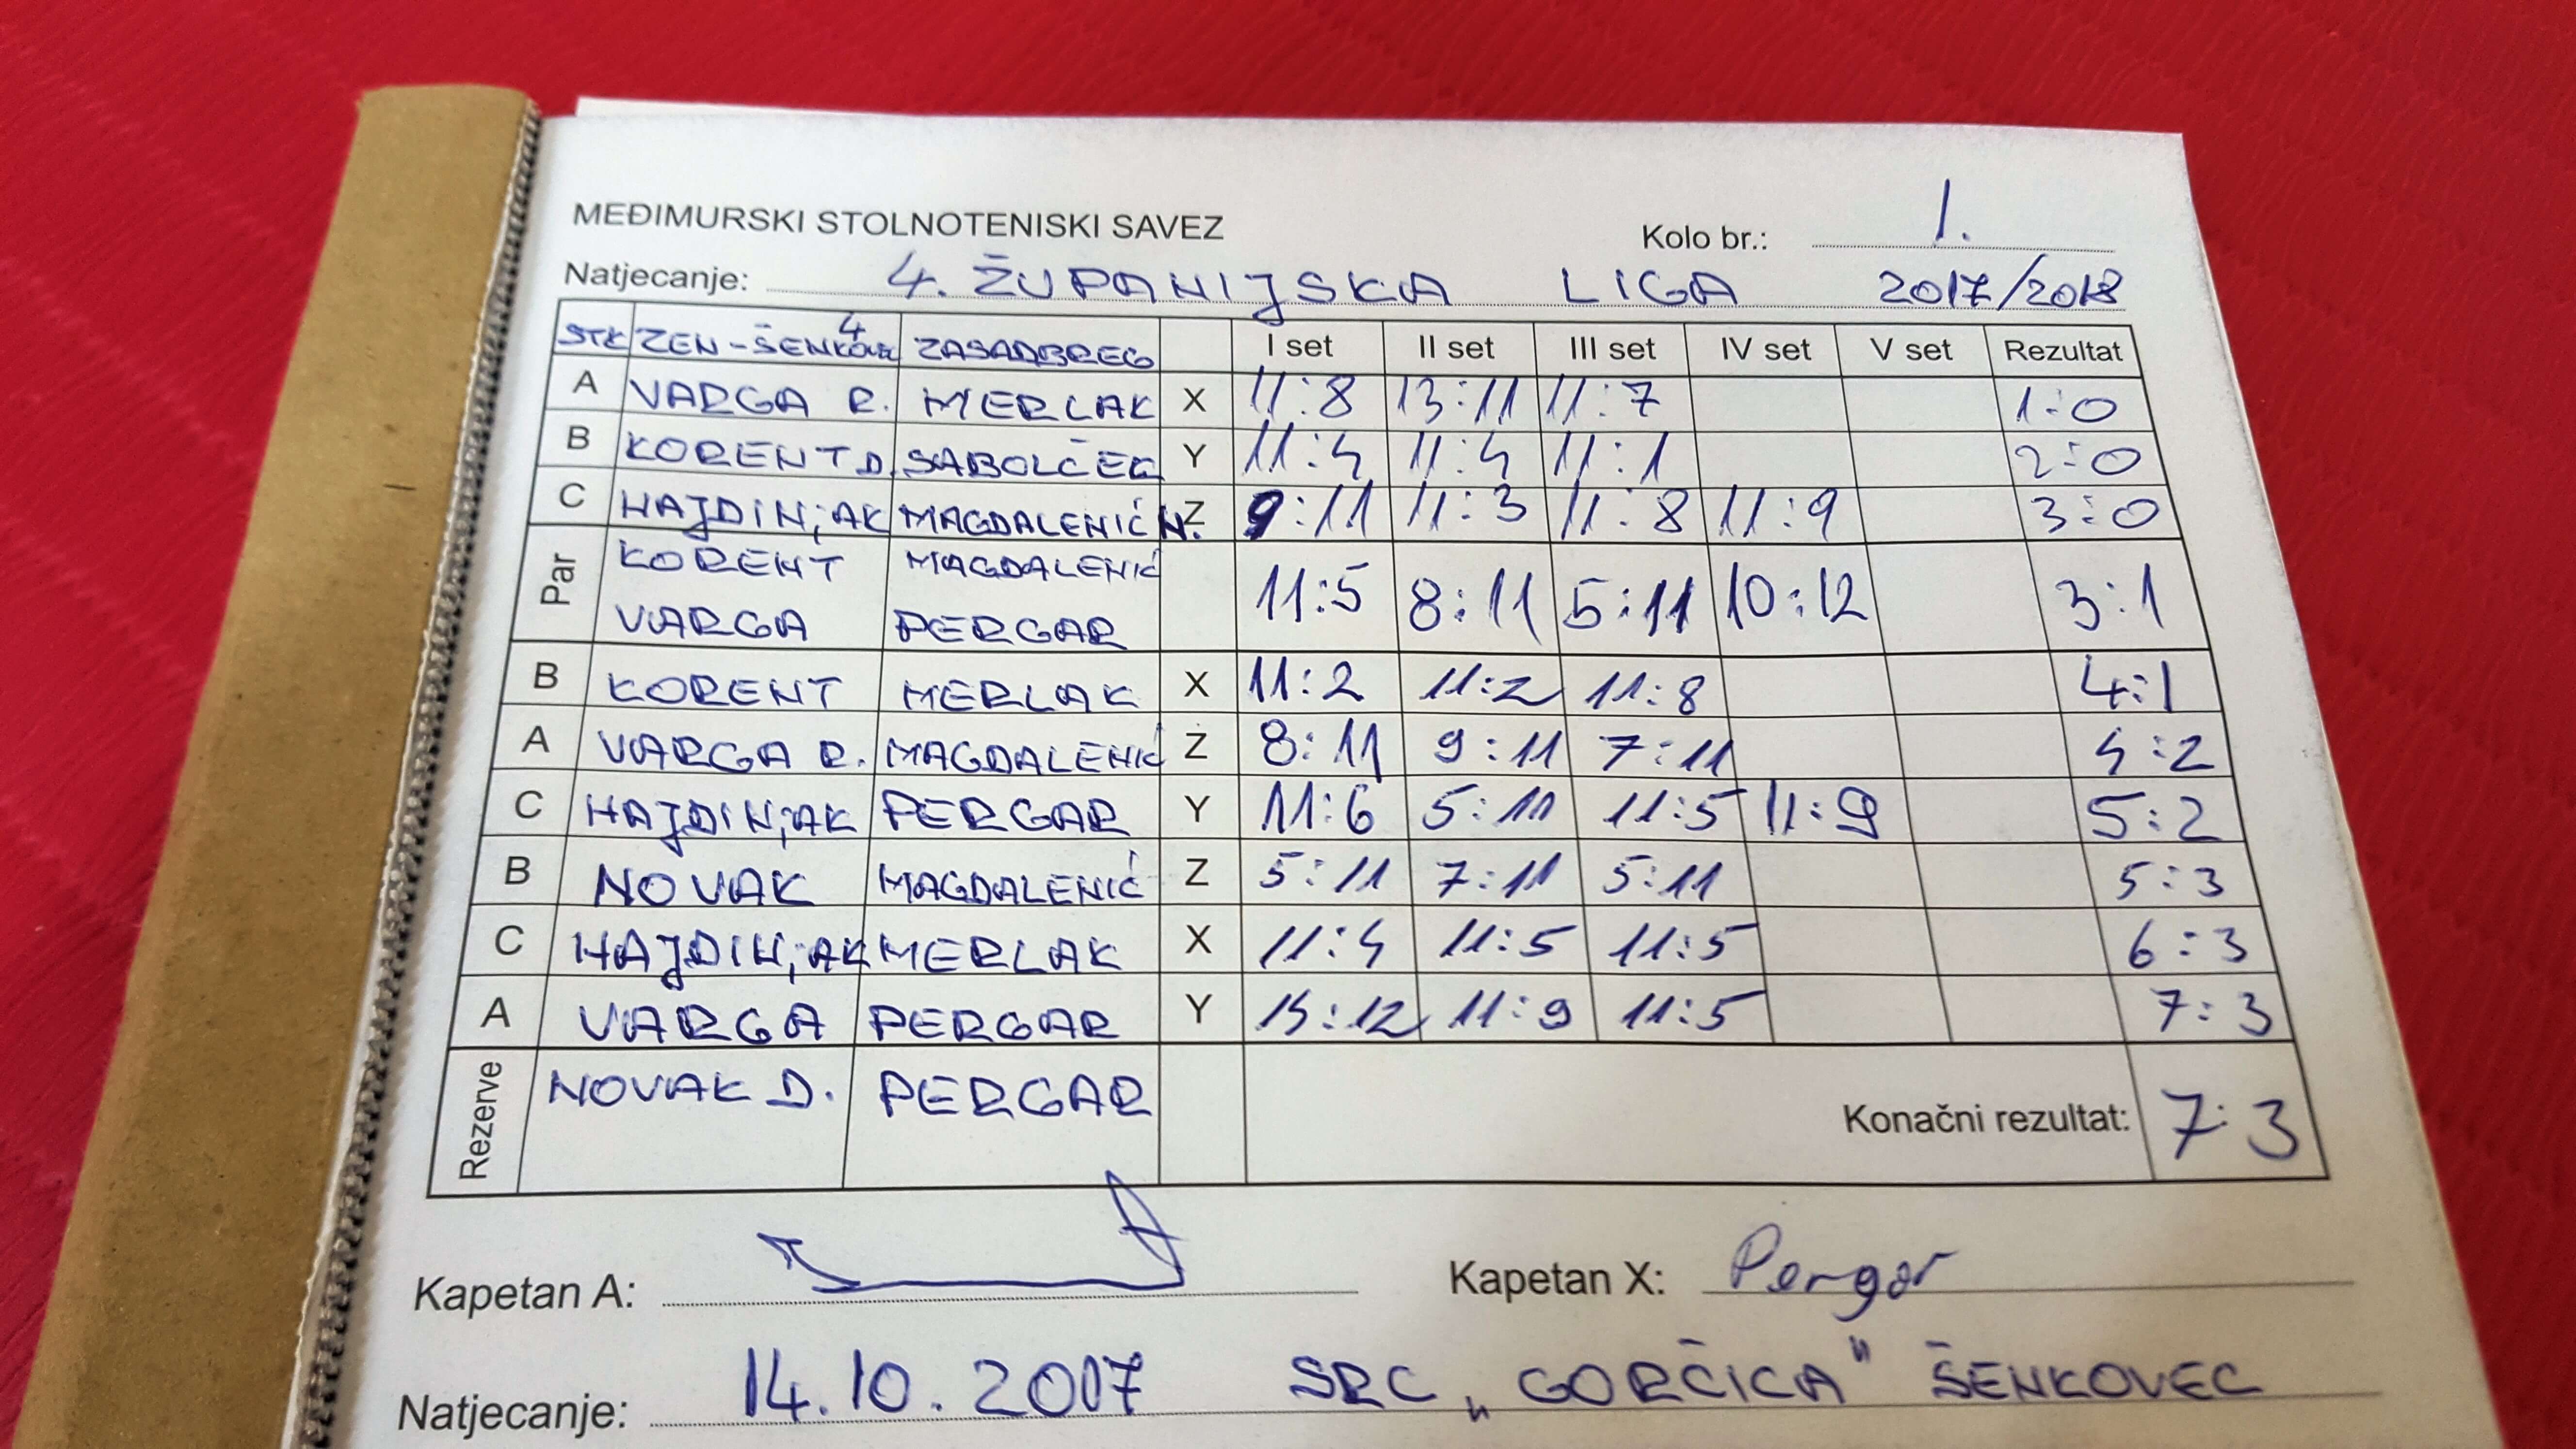 MEĐIMURSKI STOLNOTENISKI SAVEZ Kolo br.: 1.
Natjecanje: 4. ŽUPANIJSKA LIGA 2017/2018
STK ZEN-ŠENKOVEC 4 ZASADBREG I set II set III set IV set V set Rezultat
A VARGA R. MERLAK X 11:8 13:11 11:7 1:0
B KORENT D. SABOLČEC Y 11:4 11:4 11:1 2:0
C HAJDINJAK MAGDALENIĆ N. Z 9:11 11:3 11:8 11:9 3:0
Par KORENT MAGDALENIĆ
VARGA PERGAR 11:5 8:11 5:11 10:12 3:1
B KORENT MERLAK X 11:2 11:2 11:8 4:1
A VARGA R. MAGDALENIĆ Z 8:11 9:11 7:11 4:2
C HAJDINJAK PERGAR Y 11:6 5:11 11:5 11:9 5:2
B NOVAK MAGDALENIĆ Z 5:11 7:11 5:11 5:3
C HAJDINJAK MERLAK X 11:4 11:5 11:5 6:3
A VARGA PERGAR Y 14:12 11:9 11:5 7:3
Rezerve NOVAK D. PERGAR Konačni rezultat: 7:3
Kapetan A: Kapetan X: Pergar
Natjecanje: 14.10.2017 SRC „GORČICA" ŠENKOVEC